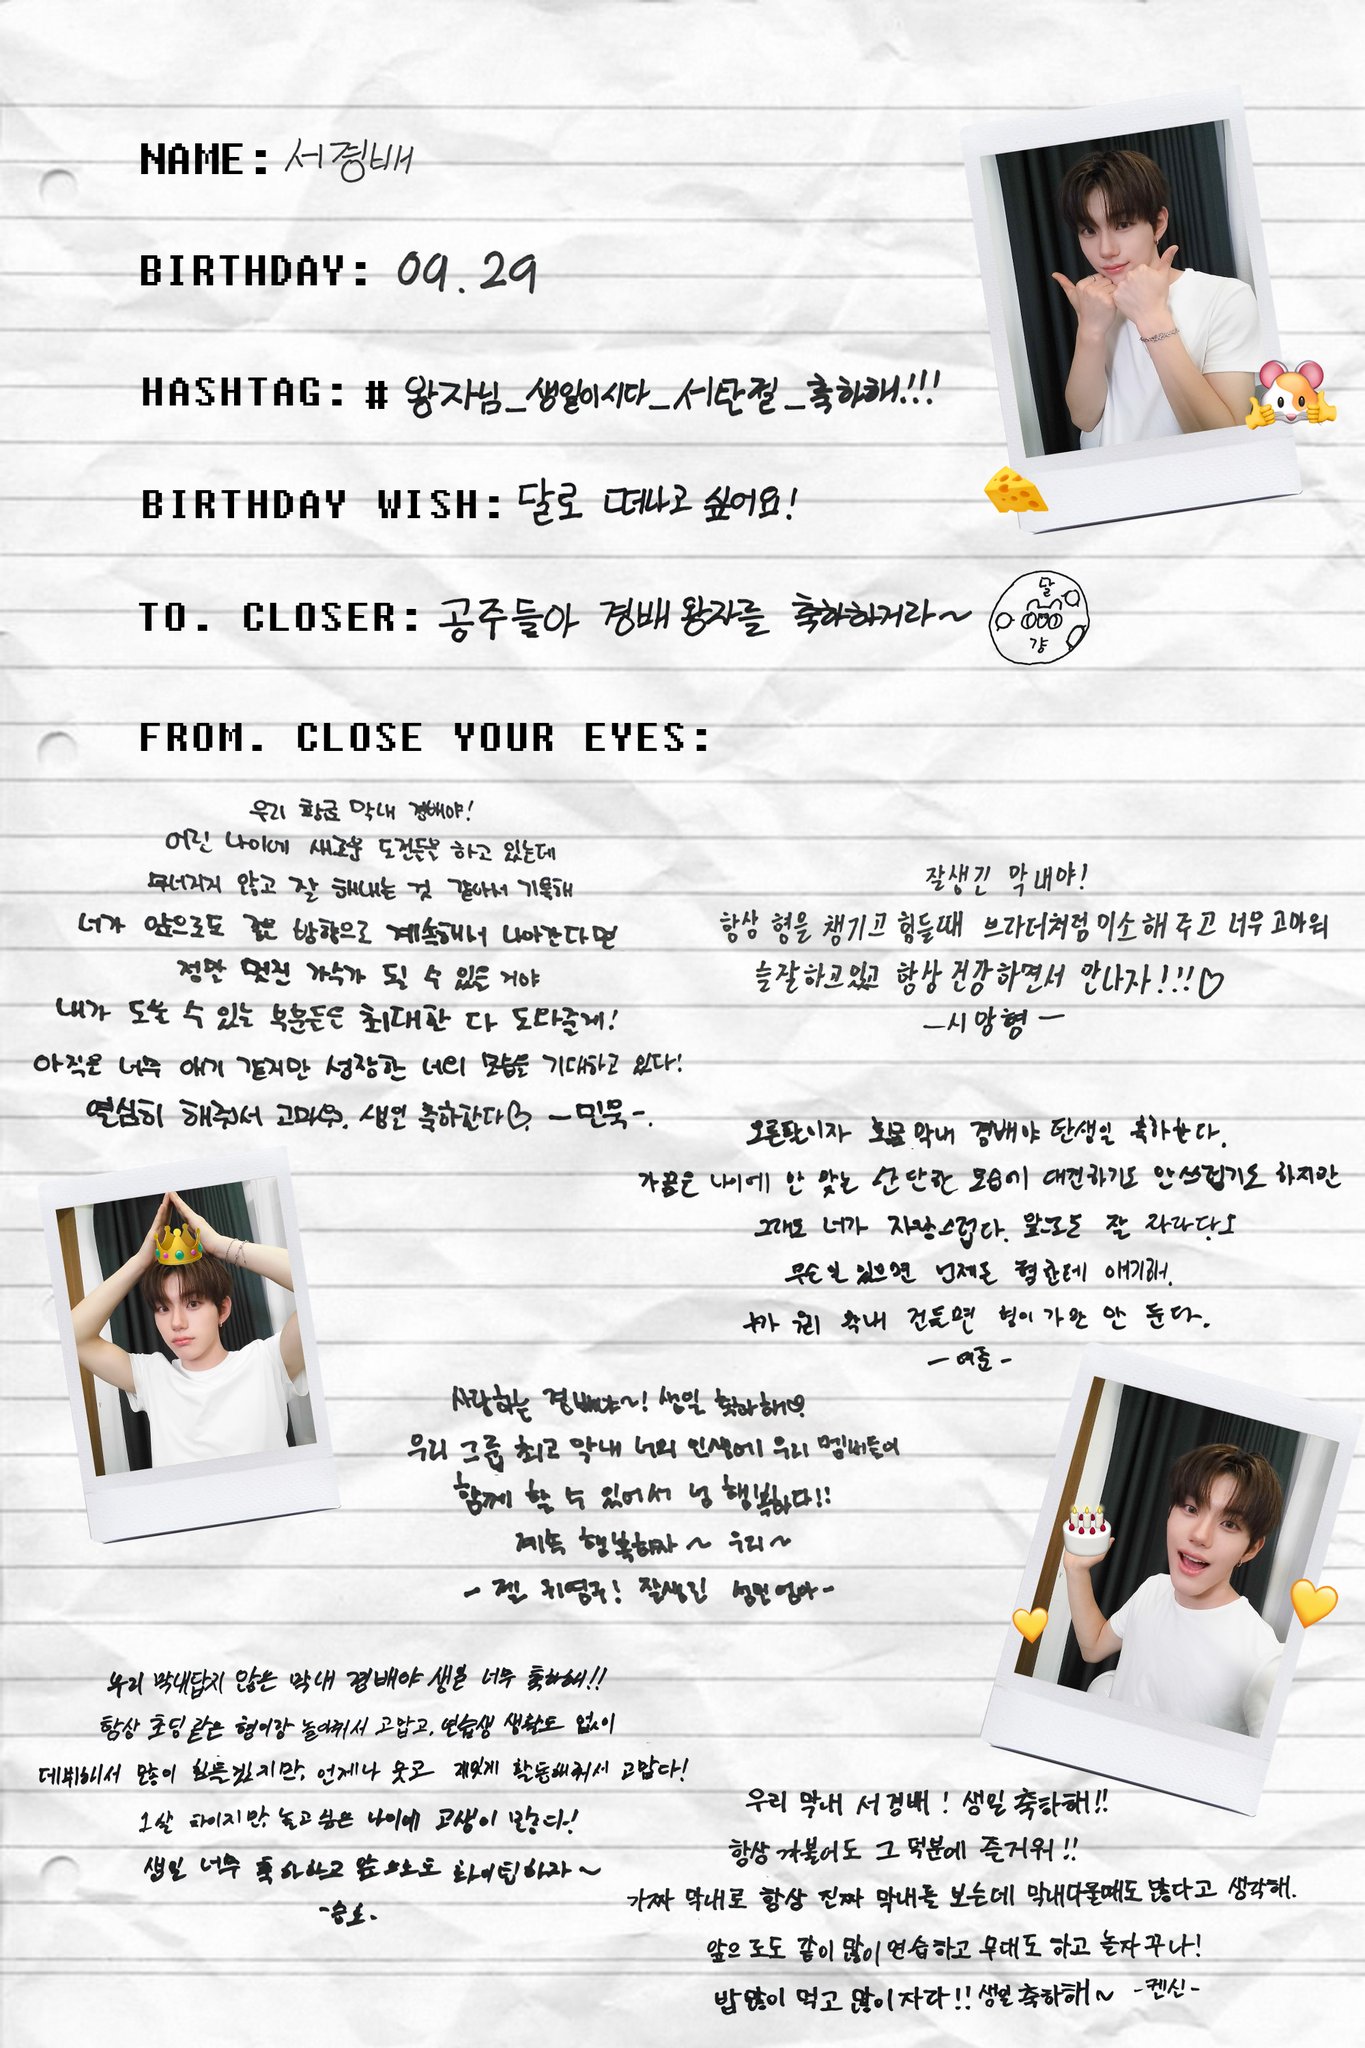 NAME: 서경배
BIRTHDAY: 09.29
HASHTAG: # 왕자님_생일이시다_서탄절_축하해!!!
BIRTHDAY WISH: 달로 떠나고 싶어요!
TO. CLOSER: 공주들아 경배왕자를 축하하거라~
달
걍
FROM. CLOSE YOUR EYES:
우리 황금 막내 경배야!
어린 나이에 새로운 도전들을 하고 있는데
무너지지 않고 잘 해내는 것 같아서 기특해
너가 앞으로도 좋은 방향으로 계속해서 나아간다면
정말 멋진 가수가 될 수 있을 거야
내가 도울 수 있는 부분들은 최대한 다 도와줄게!
아직은 너무 애기 같지만 성장한 너의 모습을 기대하고 있다!
열심히 해줘서 고마워. 생일 축하한다♡. -민욱-.
잘생긴 막내야!
항상 형을 챙기고 힘들때 브라더처럼 미소해 주고 너무 고마워
늘잘하고있고 항상 건강하면서 만나자!!!♡
-시앙형-
오른팔이자 황금막내 경배야 탄생일 축하한다.
가끔은 나이에 안 맞는 단단한 모습이 대견하기도 안쓰럽기도 하지만
그래도 너가 자랑스럽다. 앞으로도 잘 자라다오
무슨일 있으면 언제든 형한테 얘기해.
누가 우리 막내 건들면 형이 가만 안 둔다.
-여준-
사랑하는 경배야~! 생일 축하해♡
우리 그룹 최고 막내 너의 인생에 우리 멤버들이
함께 할 수 있어서 넘 행복하다!!
계속 행복하자~ 우리~
-젤 귀염주! 잘생긴 성민엄마-
우리 막내답지 않은 막내 경배야 생일 너무 축하해!!
항상 초딩같은 형이랑 놀아줘서 고맙고, 연습생 생활도 없이
데뷔해서 많이 힘들겠지만, 언제나 웃고 재밌게 활동해줘서 고맙다!
1살 차이지만, 놀고 싶은 나이에 고생이 많다!
생일 너무 축하하고 앞으로도 화이팅하자~
-승호.
우리 막내 서경배! 생일 축하해!!
항상 까불어도 그 덕분에 즐거워!!
가짜 막내로 항상 진짜 막내를 보는데 막내다울때도 많다고 생각해.
앞으로도 같이 많이 연습하고 무대도 하고 놀자꾸나!
밥 많이 먹고 많이 자라!! 생일 축하해~ -켄신-